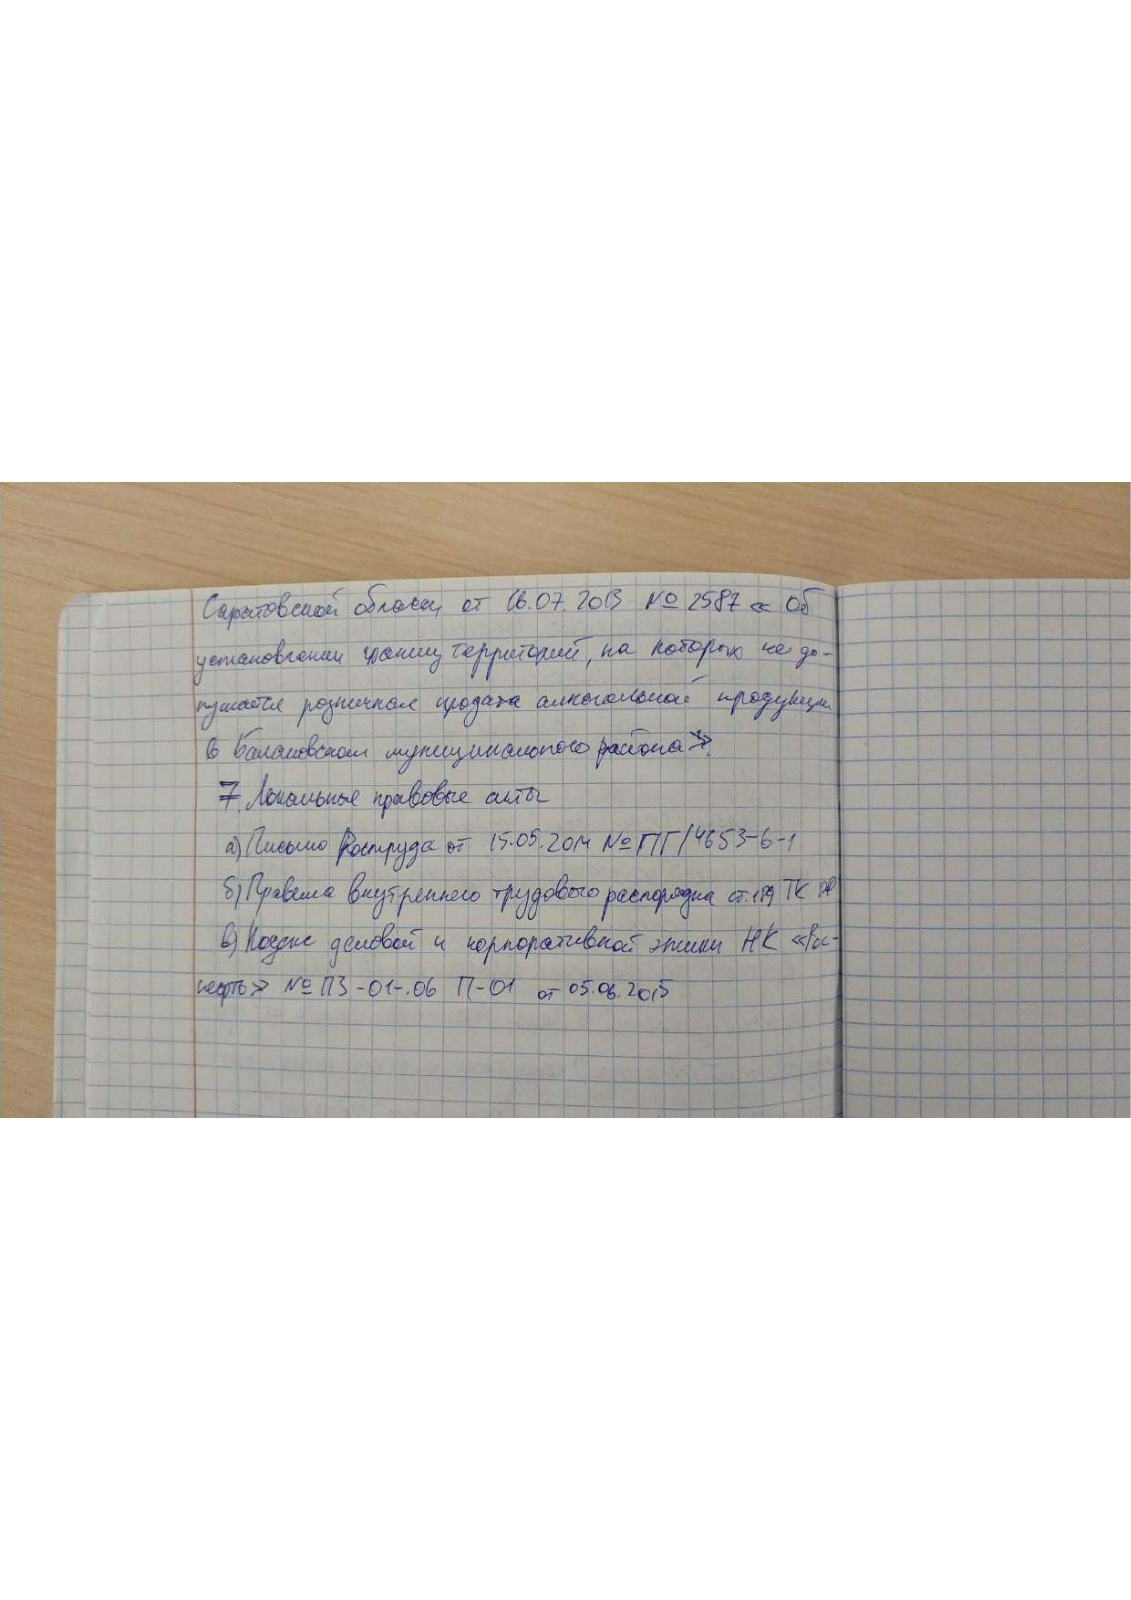 Саратовской области от 16.07.2013 № 2587 « Об
установлении границ территорий, на которых не до-
пускается розничная продажа алкогольной продукции
в Балаковском муниципального района».
7. Локальные правовые акты
а) Письмо Роструда от 15.05.2014 № ПГ/4653-6-1
б) Правила внутреннего трудового распорядка ст. 189 ТК РФ
в) Кодекс деловой и корпоративной этики НК «Рос-
нефть» № П3-01-.06 П-01 от 05.06.2015